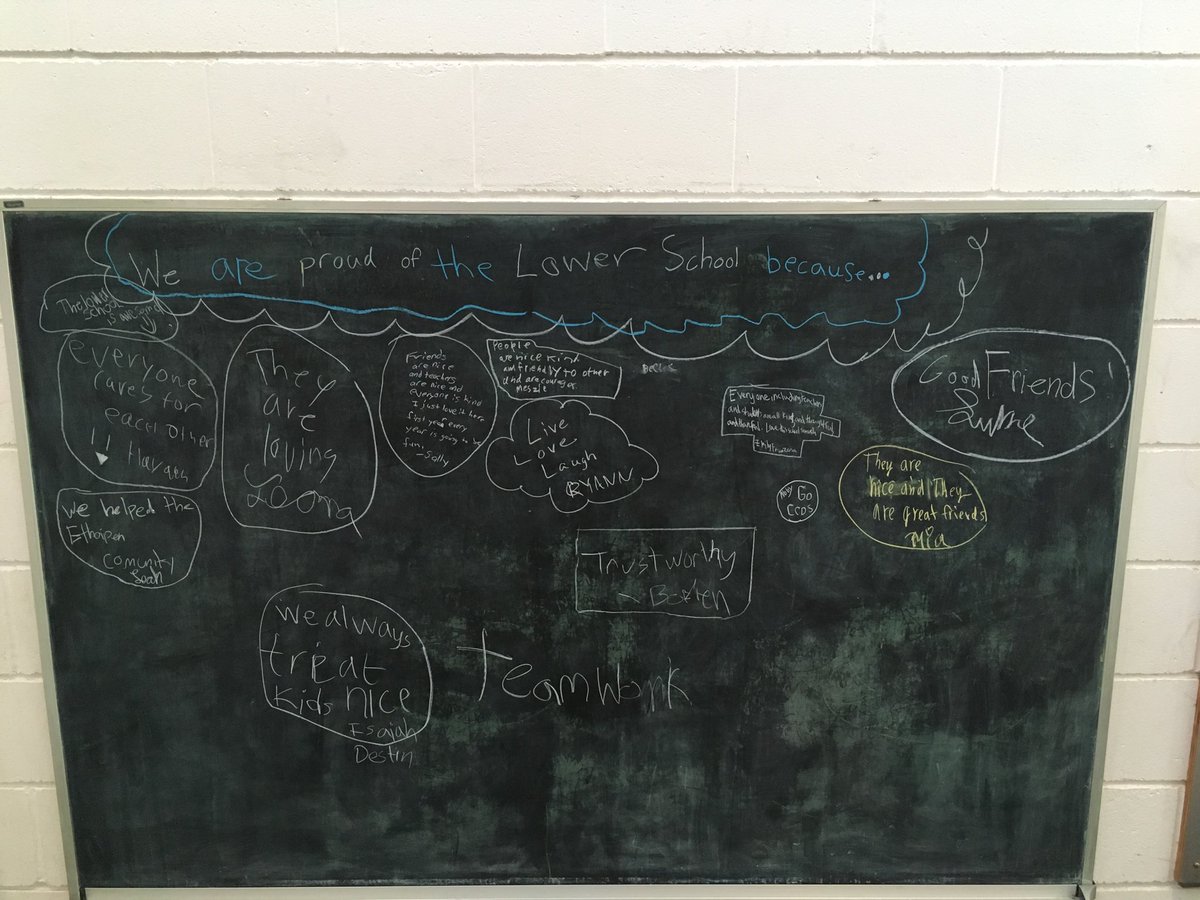 We are proud of the Lower School because...
The lower
School
is awesome
everyone
cares for
each other
!!
They
are
loving
Friends
are nice
and teachers
are nice and
everyone is kind
I just love it here
first year every
year is going to be
fun
-Sally
People
are nice Kind
and friendly to other
and are courageos
Live
Love
Laugh
RYANN
Everyone including teachers
and students are all kind and thoughtful
and thankful.
Good Friends
They are
nice and They
are great friends
Mia
Go
CCDS
We helped the
Ethoipen
comunity
Trustworthy
- Bosten
We always
treat
Kids nice
Isaiah
Destin
Teamwork